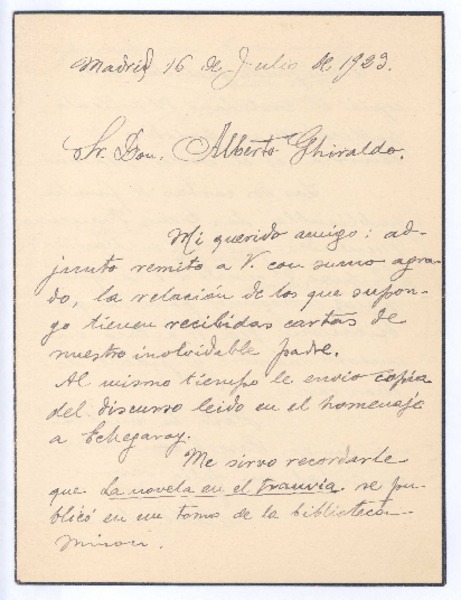 Madrid 16 de Julio de 1923.
Sr. Don. Alberto Ghiraldo.
Mi querido amigo: ad-
junto remito a V. con sumo agra-
do, la relación de los que supon-
go tienen recibidas cartas de
nuestro inolvidable padre.
Al mismo tiempo le envio copia
del discurso leido en el homenaje
a Echegaray.
Me sirvo recordarle
que La novela en el tranvía se pu-
blicó en un tomo de la biblioteca